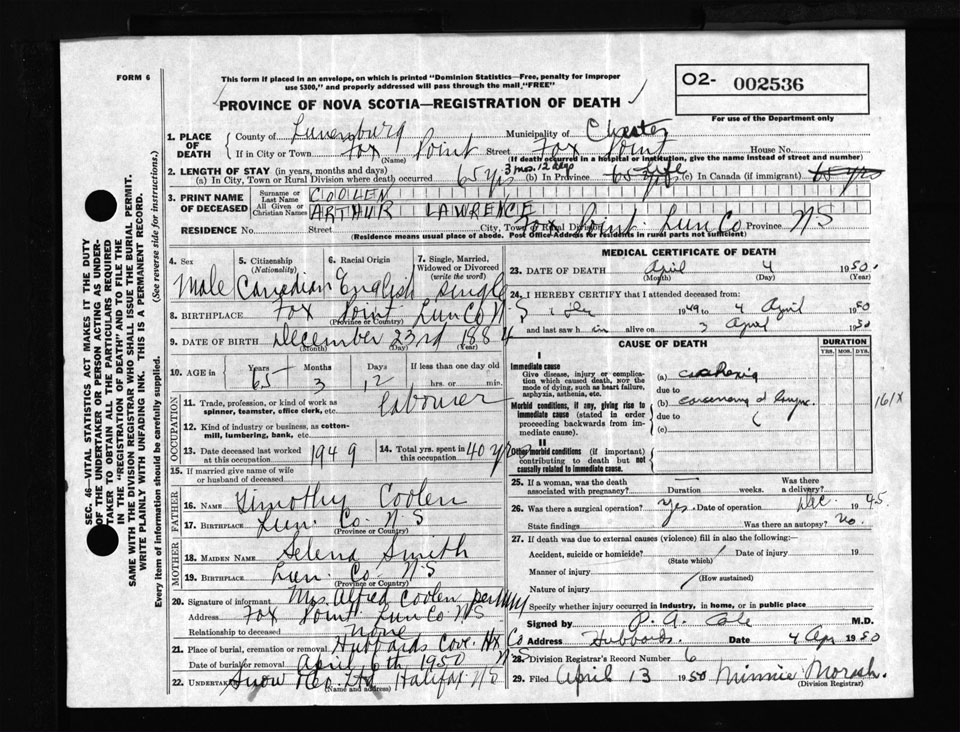 FORM 6
This form if placed in an envelope, on which is printed "Dominion Statistics—Free, penalty for improper
use $300," and properly addressed will pass through the mail "FREE"
O2- 002536
For use of the Department only
PROVINCE OF NOVA SCOTIA—REGISTRATION OF DEATH
1. PLACE OF DEATH { County of Lunenburg Municipality of Chester
If in City or Town Fox Point (Name) Street Fox Point House No.
(If death occurred in a hospital or institution, give the name instead of street and number)
2. LENGTH OF STAY (in years, months and days)
(a) In City, Town or Rural Division where death occurred 65 yrs 3 mos. 12 days (b) In Province 65 life (c) In Canada (if immigrant) 65 yrs
3. PRINT NAME OF DECEASED { Surname or Last Name COOLEN
All Given or Christian Names ARTHUR LAWRENCE
RESIDENCE No. Street City, Town or Rural Division Fox Point Lun Co Province N-S
(Residence means usual place of abode. Post Office Address for residents in rural parts not sufficient)
4. Sex Male
5. Citizenship (Nationality) Canadian
6. Racial Origin English
7. Single, Married, Widowed or Divorced (write the word) single
8. BIRTHPLACE Fox Point Lun Co N-S
(Province or Country)
9. DATE OF BIRTH December 23rd 1884
(Month) (Day) (Year)
10. AGE in { Years 65 Months 3 Days 12 If less than one day old hrs. or min.
OCCUPATION
11. Trade, profession, or kind of work as spinner, teamster, office clerk, etc. labourer
12. Kind of industry or business, as cotton-mill, lumbering, bank, etc.
13. Date deceased last worked at this occupation 1949
14. Total yrs. spent in this occupation 40 yrs
15. If married give name of wife or husband of deceased
FATHER
16. NAME Timothy Coolen
17. BIRTHPLACE Lun. Co. N-S
(Province or Country)
MOTHER
18. MAIDEN NAME Selena Smith
19. BIRTHPLACE Lun. Co N-S
(Province or Country)
20. Signature of informant Mrs. Alfred Coolen
Address Fox Point Lun Co N-S
Relationship to deceased none
21. Place of burial, cremation or removal Hubbards Cove. Hx Co N-S
Date of burial or removal April 6th 1950
22. UNDERTAKER Snow & Co. Ltd Halifax N-S
(Name and address)
MEDICAL CERTIFICATE OF DEATH
23. DATE OF DEATH April 4 1950.
(Month) (Day)
24. I HEREBY CERTIFY that I attended deceased from:
1949 to 4 April 1950
and last saw him alive on 3 April 1950
CAUSE OF DEATH
DURATION
YRS. MOS. DYS.
I
Immediate cause
Give disease, injury or complication which caused death, not the mode of dying, such as heart failure, asphyxia, asthenia, etc.
(a) cachexia
due to
Morbid conditions, if any, giving rise to immediate cause (stated in order proceeding backwards from immediate cause).
(b) carcinoma of larynx
due to
(c)
161X
II
Other morbid conditions (if important) contributing to death but not causally related to immediate cause.
25. If a woman, was the death associated with pregnancy? — Duration weeks. Was there a delivery?
26. Was there a surgical operation? yes. Date of operation Dec. 1945
State findings Was there an autopsy? no.
27. If death was due to external causes (violence) fill in also the following:—
Accident, suicide or homicide? (State which) Date of injury 19
Manner of injury (How sustained)
Nature of injury
Specify whether injury occurred in industry, in home, or in public place
Signed by P. A. Cole M.D.
Address Hubbards. Date 4 Apr 1950
28. Division Registrar's Record Number 6
29. Filed April 13 1950 Minnie Morash.
(Division Registrar)
SEC. 46 VITAL STATISTICS ACT MAKES IT THE DUTY
OF THE UNDERTAKER OR PERSON ACTING AS UNDER-
TAKER TO OBTAIN ALL THE PARTICULARS REQUIRED
IN THE "REGISTRATION OF DEATH" AND TO FILE THE
SAME WITH THE DIVISION REGISTRAR WHO SHALL ISSUE THE BURIAL PERMIT.
WRITE PLAINLY WITH UNFADING INK. THIS IS A PERMANENT RECORD.
Every item of information should be carefully supplied. (See reverse side for instructions.)